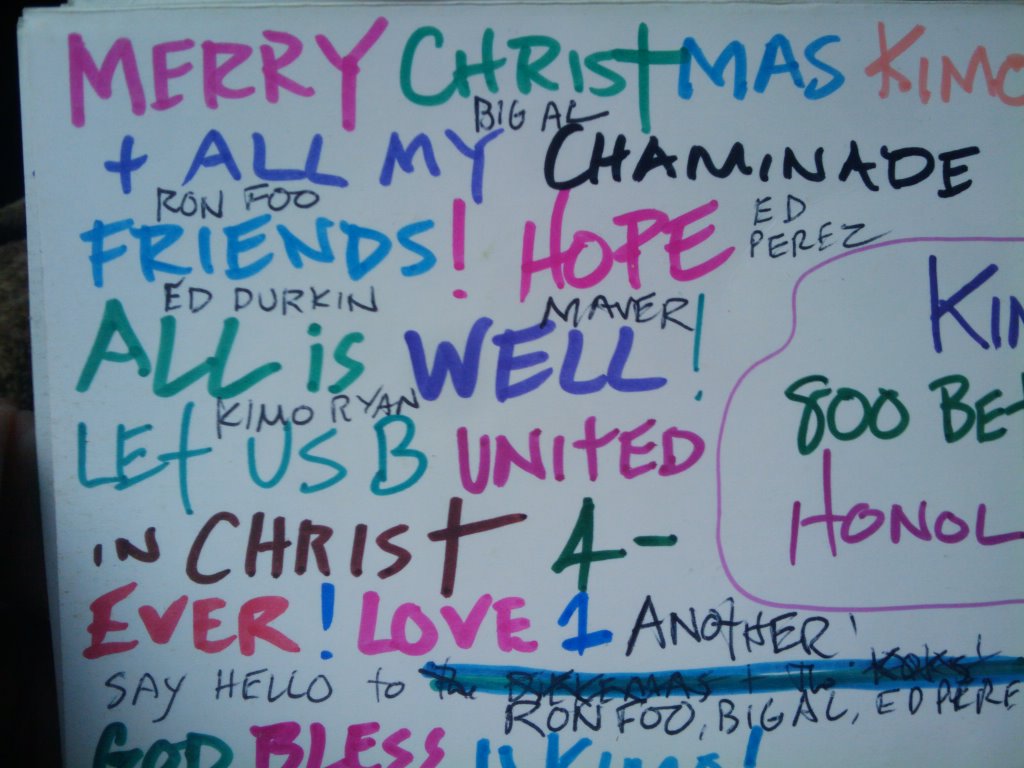 MERRY CHRISTMAS KIMO
BIG AL
+ ALL MY CHAMINADE
RON FOO
FRIENDS! HOPE
ED
PEREZ
ED DURKIN
MAVER
ALL is WELL!
KIMO RYAN
LET US B UNITED
IN CHRIST 4-
EVER! LOVE 1 ANOTHER!
SAY HELLO to the DYKEMAS + The
RON FOO, BIG AL, ED PERE
GOD BLESS U KIMO!
KIM
800 BET
HONOL